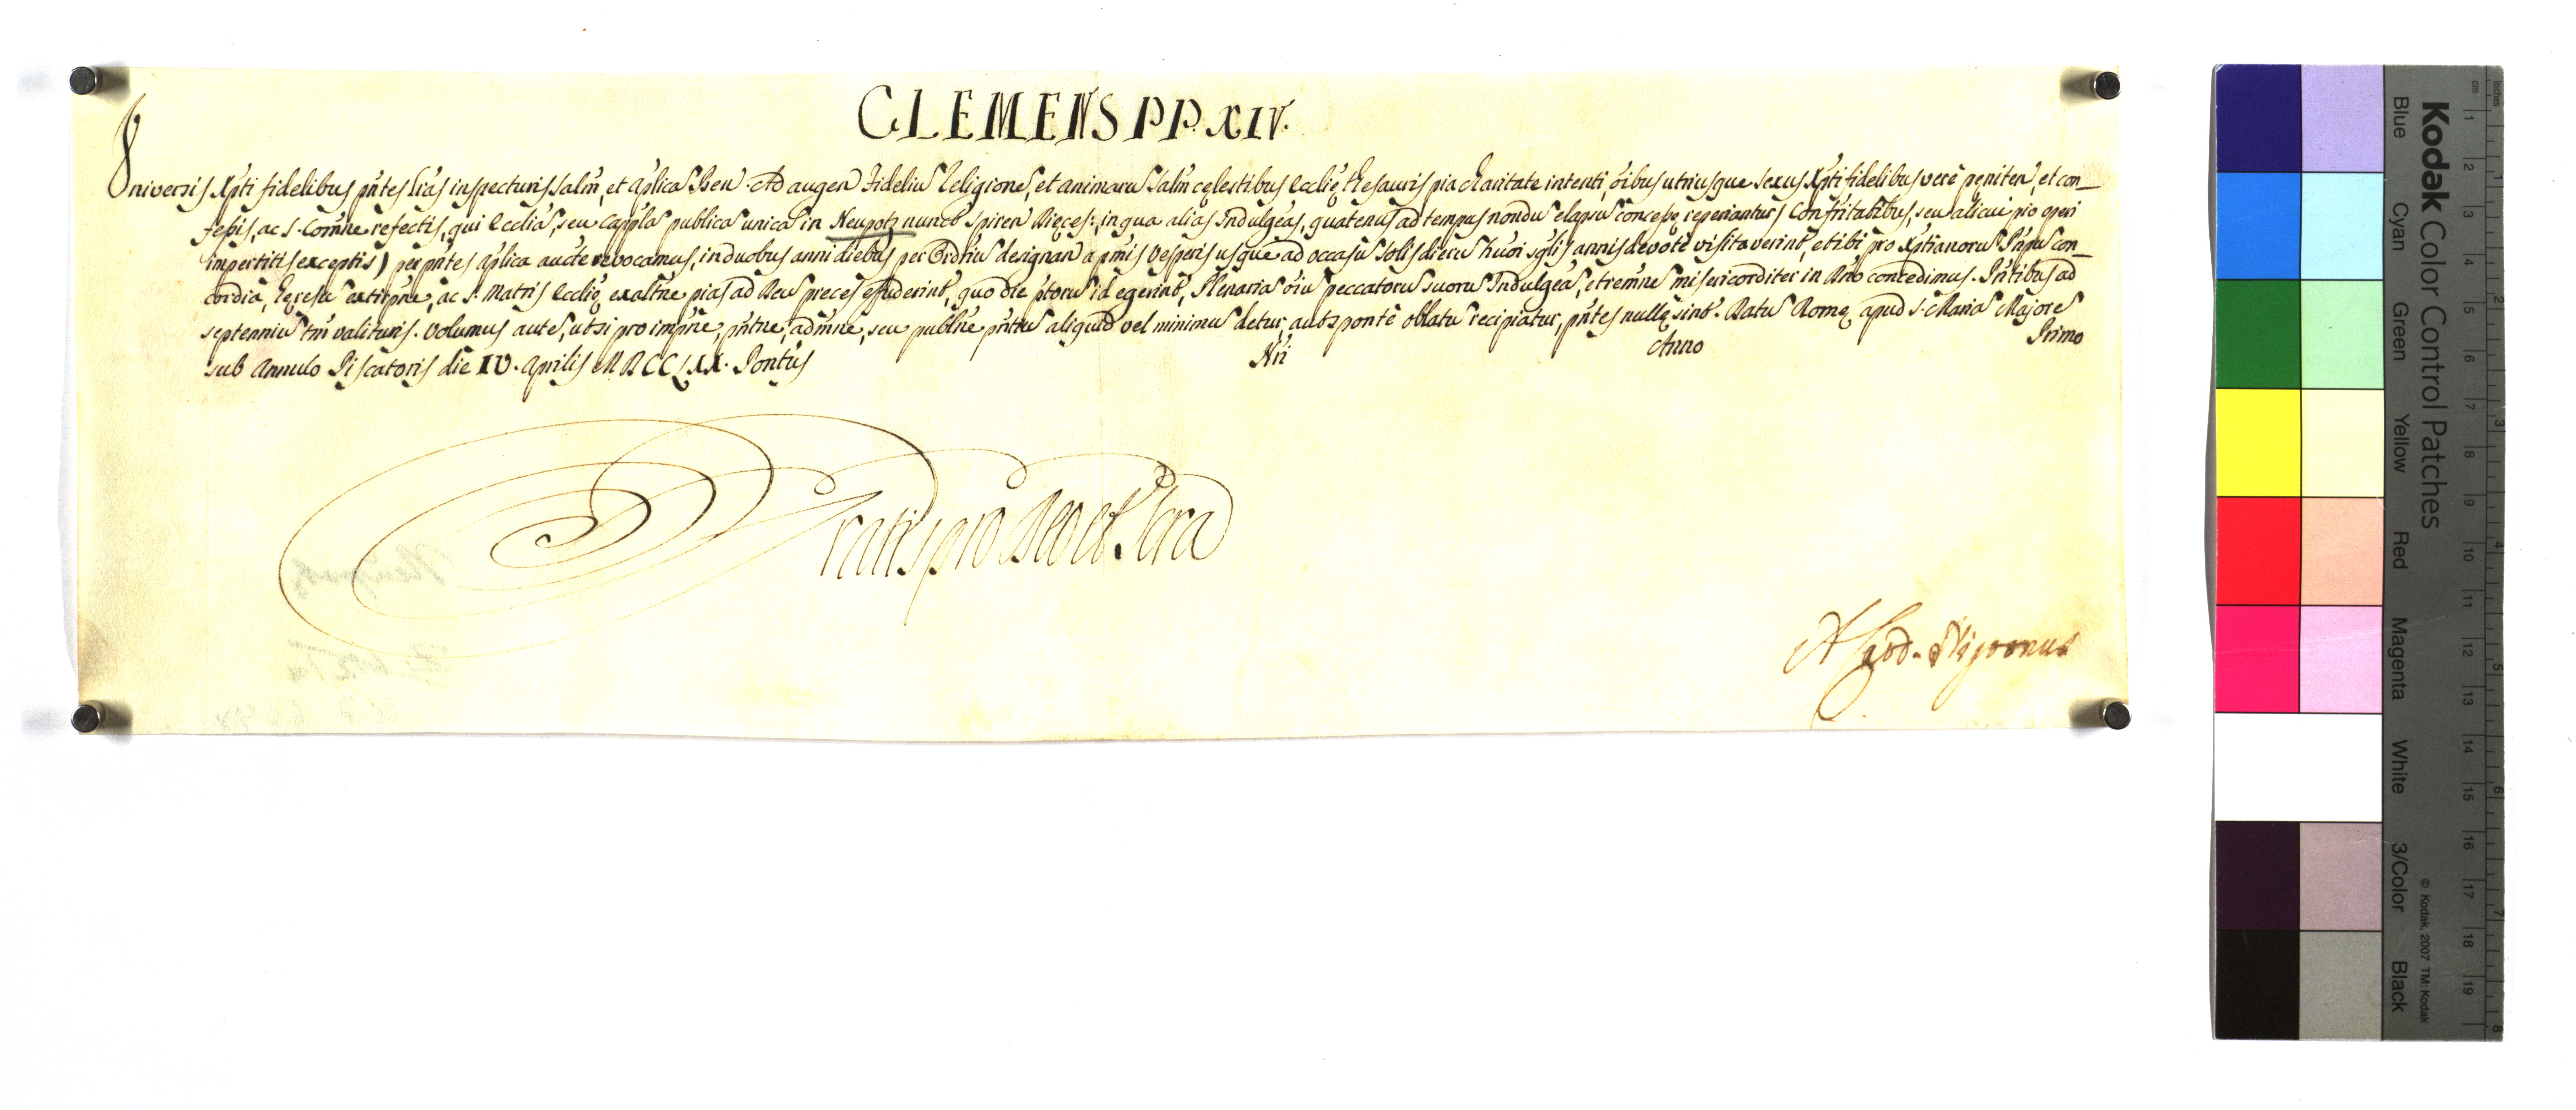 CLEMENS PP. XIV.
Universis Xp̃ti fidelibus p̃ntes l̃ras inspecturis Salm̃, et ap̃licã Ben. Ad augen̄ fideliũ Religionẽ, et animarũ Salm̃ cęlestibus Ecclię thesauris pia charitate intenti, õibus utriusque sexus Xp̃ti fidelibus verè pęniten̄, et con_
fessis, ac S. Com̃ne refectis, qui Eccliã, seu Cappl̃ã publicã unicã in Neupotz nunc̃ Spiren̄ Dięces:, in qua aliàs Indulgẽas, quatenus ad tempus nondũ elapsũ concessę reperiantur,
impertitis exceptis) per p̃ntes ap̃lica aucte revocamus, in duobus anni diebus per Ordriũ designan̄ a p̃mis Vesperis usque ad occasũ Solis dierũ hũõi sg̃lis annis devotè visitaverint, et ibi pro Xp̃tianorũ P̃npũ con_
cordia, hęresũ extirpñe, ac S. Matris Ecclię exaltñe pias ad Deũ preces effuderint, quo die p̃torũ id egerint, Plenariã õiũ peccatorũ suorũ Indulgẽã, et remñe misericorditer in Dño concedimus. P̃ntibus ad
septenniũ tm̃ valituris. Volumus autẽ, ut si pro impñe, p̃ntñe, admñe, seu publñe p̃ntiũ aliquid vel minimũ detur, aut sponte oblatũ recipiatur, p̃ntes nullę sint. Datũ Romę apud S. Mariã Majorẽ
sub Annulo Piscatoris die IV. Aprilis MDCCLXX. Pontus Nri Anno Primo
Gratis pro Deo et Scra
A. Card. Nigronus
Kodak Color Control Patches
Blue Cyan Green Yellow Red Magenta White 3/Color Black
© Kodak, 2007 TM: Kodak
cm 1 2 3 4 5 6 7 8 9 10 11 12 13 14 15 16 17 18 19
inches 1 2 3 4 5 6 7 8